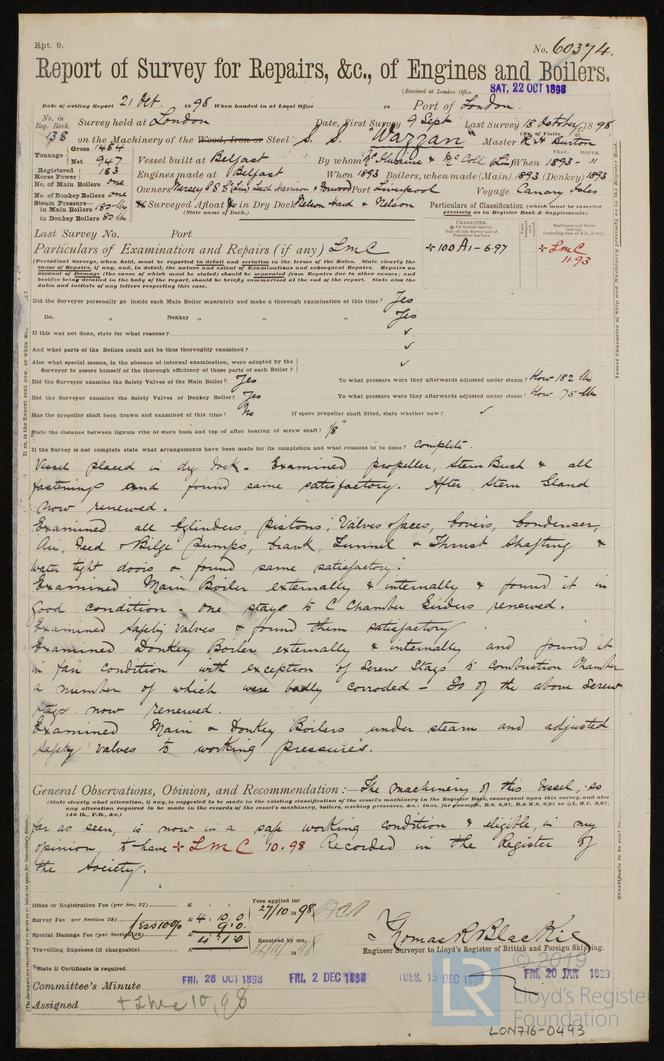 Rpt. 9.
No. 60374.
Report of Survey for Repairs, &c., of Engines and Boilers.
(Received at London Office SAT, 22 OCT 1898
Date of writing Report 21 Oct 1898 When handed in at Local Office 18 Port of London
No. in Reg. Book. 138 Survey held at London Date, First Survey 9 Sept Last Survey 18 October 1898
(No. of Visits
on the Machinery of the Wood, Iron or Steel S. S. "Wazzan" Master R H Burton
Tonnage Gross 1484 Net 947
Vessel built at Belfast By whom McIlwaine & McColl Ld When 1893 - 11
Registered Horse Power 183
Engines made at Belfast When 1893 Boilers, when made (Main) 1893 (Donkey) 1893
No. of Main Boilers one
No. of Donkey Boilers one
Owners Mersey S S Co Port Liverpool Voyage Canary Isles
Steam Pressure in Main Boilers 180 lbs
in Donkey Boilers 80 lbs
Surveyed Afloat & in Dry Dock Nelson
(State name of Dock.)
Particulars of Classification (which must be inserted precisely as in Register Book & Supplements).
Last Survey No. Port
+ 100 A1 - 6.97
+ LMC 11.93
Particulars of Examination and Repairs (if any) LMC
(Periodical Surveys, when held, must be reported in detail and seriatim in the terms of the Rules. State clearly the
cause of Repairs, if any, and, in detail, the nature and extent of Examinations and subsequent Repairs. Repairs on
account of Damage (the cause of which must be stated) should be separated from Repairs due to other causes; and
besides being detailed in the body of the report, should be briefly summarised at the end of the report. State also the
dates and initials of any letters respecting this case.
Did the Surveyor personally go inside each Main Boiler separately and make a thorough examination at this time? Yes
Do. " Donkey " " " Yes
If this was not done, state for what reasons? ✓
And what parts of the Boilers could not be thoroughly examined? ✓
Also what special means, in the absence of internal examination, were adopted by the
Surveyor to assure himself of the thorough efficiency of those parts of each Boiler? ✓
Did the Surveyor examine the Safety Valves of the Main Boiler? Yes To what pressure were they afterwards adjusted under steam? Blow 182 lbs
Did the Surveyor examine the Safety Valves of Donkey Boiler? Yes To what pressure were they afterwards adjusted under steam? Blow 75 lbs
Has the propeller shaft been drawn and examined at this time? No If spare propeller shaft fitted, state whether new? ✓
State the distance between lignum vitæ of stern bush and top of after bearing of screw shaft? 1/8"
If the Survey is not complete state what arrangements have been made for its completion and what remains to be done? Complete.
Vessel placed in dry dock. Examined propeller, Stern Bush & all
fastenings and found same satisfactory. After Stern Gland
now renewed.
Examined all Cylinders, pistons, Valves, faces, covers, Condenser,
Air, Feed & Bilge pumps, Crank, Tunnel & Thrust Shafting &
water tight doors & found same satisfactory.
Examined Main Boiler externally & internally & found it in
good condition. One stay to C Chamber Girders renewed.
Examined safety valves & found them satisfactory.
Examined Donkey Boiler externally & internally and found it
in fair condition with exception of Screw Stays to combustion Chamber
a number of which were badly corroded - 20 of the above Screw
stays now renewed.
Examined Main & Donkey Boilers under steam and adjusted
safety valves to working pressures.
General Observations, Opinion, and Recommendation :— The machinery of this Vessel, so
(State clearly what alteration, if any, is suggested to be made in the existing classification of the vessel's machinery in the Register Book, consequent upon this survey, and also
any alteration required to be made in the records of the vessel's machinery, boilers, working pressures, &c.; thus, for example, B.S. 9,97, B.&M.S. 9,97 or L.M.C. 9,97,
140 lb., F.D., &c.)
far as seen, is now in a safe working condition & eligible, in my
opinion, to have + LMC 10.98 recorded in the Register of
the Society.
Office or Registration Fee (per Sec. 27) £ : :
Survey Fee (per Section 28) £ 4. 10. 0
Less 10% 9. 0
Special Damage Fee (per Section 28) £ 4. 1. 0
Travelling Expenses (if chargeable) £ : :
Fees applied for 27/10 1898
Received by me,
Thomas R Blackie
Engineer Surveyor to Lloyd's Register of British and Foreign Shipping.
State if Certificate is required
Committee's Minute FRI, 28 OCT 1898 FRI, 2 DEC 1898 FRI, 20 JAN 1899
Assigned + LMC 10,98
© 2019
LR
Lloyd's Register
Foundation
LON716-0493